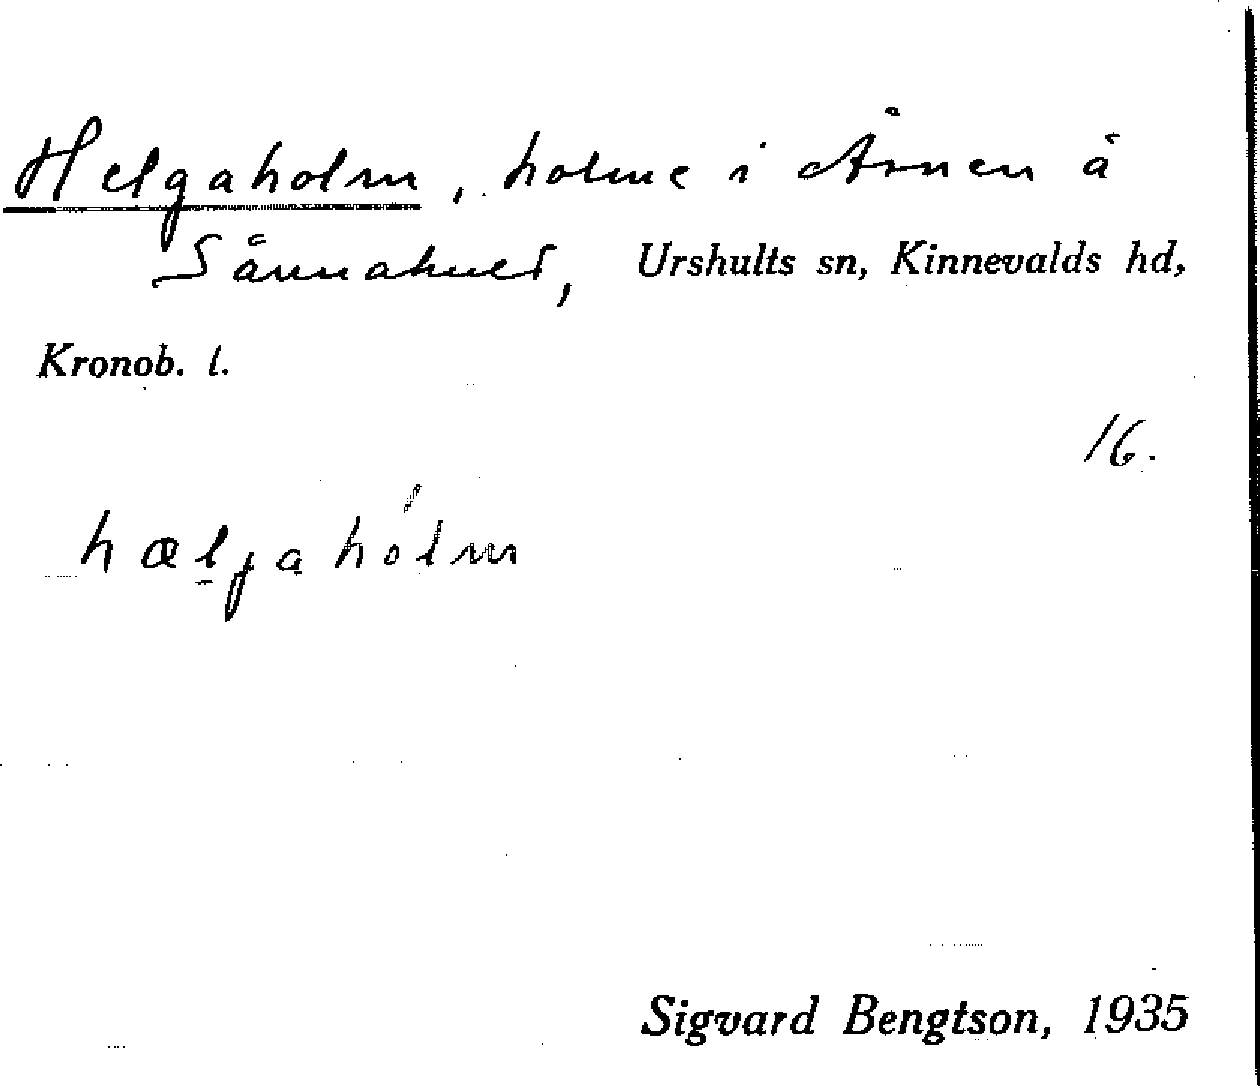 Helgaholm, holme i Åsnen å
Sånnahult, Urshults sn, Kinnevalds hd,
Kronob. l.
16.
hæljahólm
Sigvard Bengtson, 1935